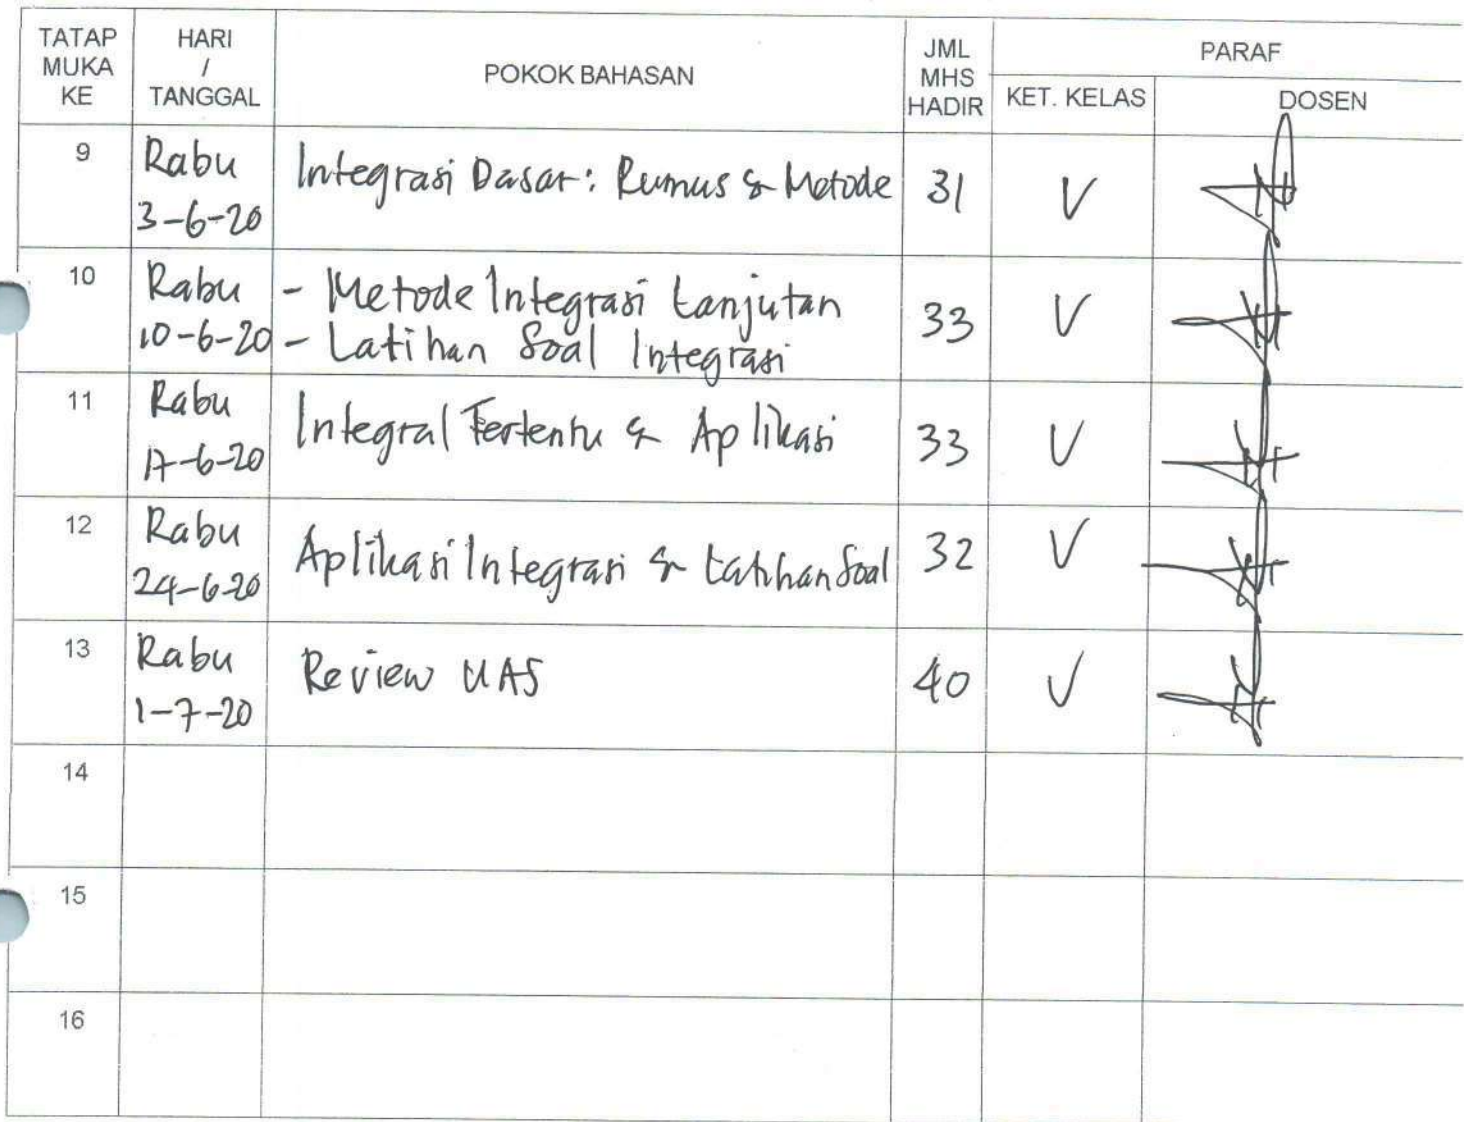 TATAP MUKA KE
HARI / TANGGAL
POKOK BAHASAN
JML MHS HADIR
PARAF
KET. KELAS
DOSEN
9
Rabu
3-6-20
Integrasi Dasar: Rumus & Metode
31
V
10
Rabu
10-6-20
- Metode Integrasi Lanjutan
- Latihan Soal Integrasi
33
V
11
Rabu
17-6-20
Integral Tertentu & Aplikasi
33
V
12
Rabu
24-6-20
Aplikasi Integrasi & Latihan Soal
32
V
13
Rabu
1-7-20
Review UAS
40
V
14
15
16